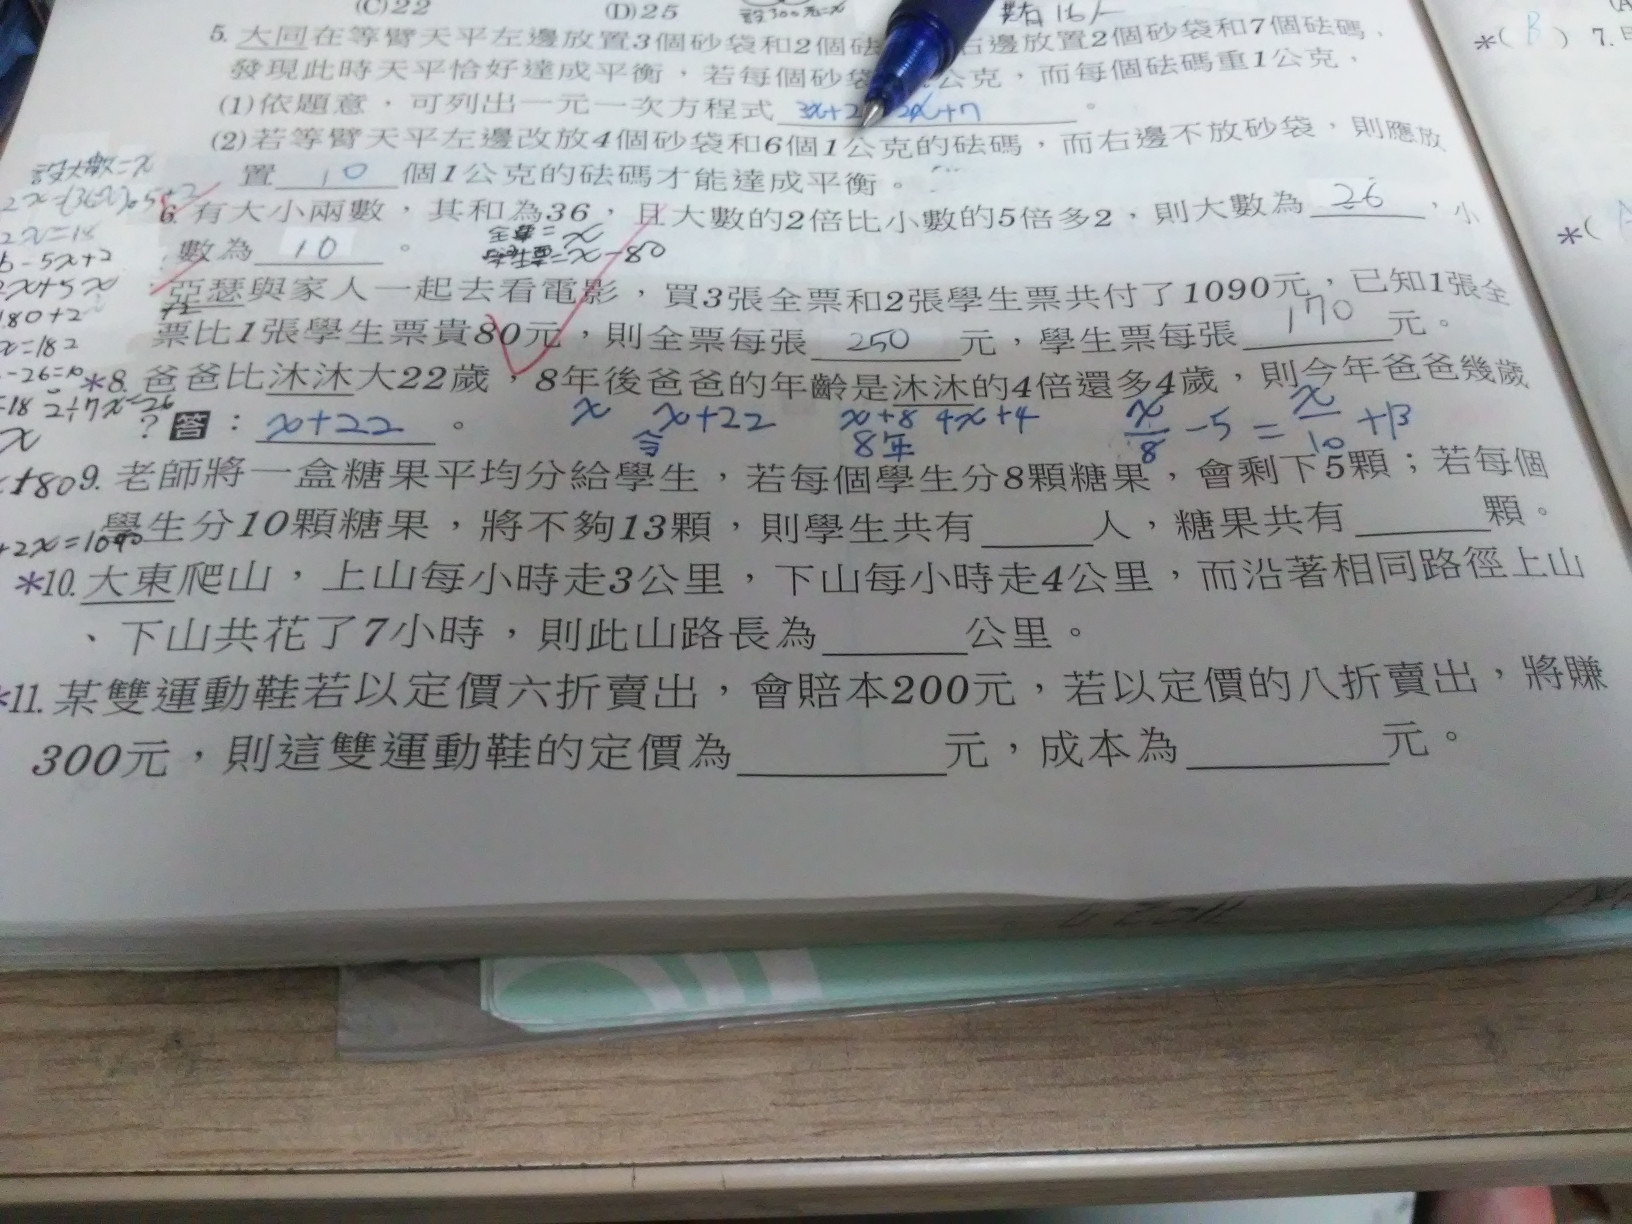 (C)22 (D)25
5. 大同在等臂天平左邊放置3個砂袋和2個砝 右邊放置2個砂袋和7個砝碼，
發現此時天平恰好達成平衡，若每個砂袋 公克，而每個砝碼重1公克，
(1)依題意，可列出一元一次方程式 3x+2 2x+7 。
(2)若等臂天平左邊改放4個砂袋和6個1公克的砝碼，而右邊不放砂袋，則應放
置 10 個1公克的砝碼才能達成平衡。
設大數=x
6. 有大小兩數，其和為36，且大數的2倍比小數的5倍多2，則大數為 26 ，小
數為 10 。
全票=x
x-80
亞瑟與家人一起去看電影，買3張全票和2張學生票共付了1090元，已知1張全
票比1張學生票貴80元，則全票每張 250 元，學生票每張 170 元。
*8. 爸爸比沐沐大22歲，8年後爸爸的年齡是沐沐的4倍還多4歲，則今年爸爸幾歲
？答：x+22 。
x x+22 x+8 4x+4 x/8 -5 = x/10 +13
今 8年
9. 老師將一盒糖果平均分給學生，若每個學生分8顆糖果，會剩下5顆；若每個
學生分10顆糖果，將不夠13顆，則學生共有 人，糖果共有 顆。
+2x=1090
*10. 大東爬山，上山每小時走3公里，下山每小時走4公里，而沿著相同路徑上山
、下山共花了7小時，則此山路長為 公里。
*11. 某雙運動鞋若以定價六折賣出，會賠本200元，若以定價的八折賣出，將賺
300元，則這雙運動鞋的定價為 元，成本為 元。
*( B ) 7.
*(